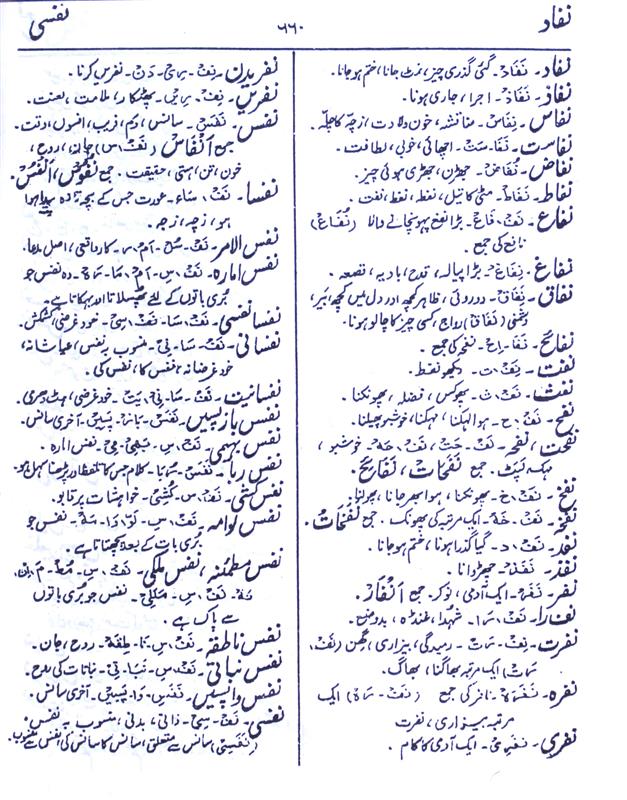 نفاد
۶۶۰
نفسی
نفاد۔ نَفَاد۔ گئی گذری چیز، نرٹ جانا، ختم ہو جانا۔
نفاذ۔ نَفَاذ۔ اجرا، جاری ہونا۔
نفاس۔ نِفَاس۔ مناقشہ، خون ولادت، زچہ کا چلّہ۔
نفاست۔ نَفَا۔سَتْ۔ اچھائی، خوبی، لطافت۔
نفاض۔ نُفَاض۔ جھڑن، جھڑی ہوئی چیز۔
نفاط۔ نَفَاط۔ مٹی کا تیل، نفط، نفط، نفت۔
نفاع۔ نَفْ۔ فَاع۔ بڑا نفع پہونچانے والا (نُفَاع)
نافع کی جمع۔
نفاغ۔ نِفَاغ۔ بڑا پیالہ، قدح، بادیہ، قصعہ۔
نفاق۔ نِفَاق۔ دوروئی، ظاہر کچھ اور دل میں کچھ، بَیر،
دشمنی (نَفَاق) رواج، کسی چیز کا چالو ہونا۔
نفائح۔ نَفَا۔ اِح۔ نفحہ کی جمع۔
نفت۔ نِفْ۔ ت۔ دیکھو نفط۔
نفث۔ نَفْ۔ ث۔ پھوکس، فضلہ، پھونکنا۔
نفح۔ نَفْ۔ ح۔ ہوا لہکنا، مہکنا، خوشبو پھیلنا۔
نفحت، نفحہ۔ نَفْ۔ حَتْ، نَفْ۔ حَہ۔ خوشبو،
مہک، لپٹ۔ جمع نَفْحَات، نَفَائِح۔
نفخ۔ نَفْ۔ خ۔ پھونکنا، ہوا بھر جانا، پھولنا۔
نفخہ۔ نَفْ۔ خَہ۔ ایک مرتبہ کی پھونک۔ جمع نَفْخَات۔
نفد۔ نَفْ۔ د۔ گیا گذرا ہونا، ختم ہو جانا۔
نفذ۔ نَفَذ۔ چھڑوانا۔
نفر۔ نَفَر۔ ایک آدمی، نوکر۔ جمع اَنْفَار۔
نفرا۔ نَفْ۔ رَا۔ شہدا، غنڈہ، بدوضع۔
نفرت۔ نِفْ۔ رَت۔ رمیدگی، بیزاری، گِھن (نَفْ۔
رَت) ایک مرتبہ بھاگنا، بھاگ۔
نفرہ۔ نَفَرَہ۔ نافر کی جمع (نَفْ۔ رَہ) ایک
مرتبہ بیزاری، نفرت
نفری۔ نَفَرِی۔ ایک آدمی کا کام۔
نفریدن۔ نِفْ۔ رِی۔ دَن۔ نفریں کرنا۔
نفریں۔ نِفْ۔ رِیں۔ پھٹکار، ملامت، لعنت۔
نفس۔ نَفَس۔ سانس، دَم، فریب، افسوں، وقت۔
جمع اَنْفَاس (نَفْ۔ س) جان، روح،
خون، تن، ہستی، حقیقت۔ جمع نُفُوس، اَنْفُس۔
نفسا۔ نَفْ۔ سَاء۔ عورت جس کے بچہ تازہ پیدا ہوا
ہو، زچہ، زجہ۔
نفس الامر۔ نَفْ۔ سُل۔ اَم۔ ر۔ کار واقعی، اصل مدعا۔
نفس امارہ۔ نَفْ۔ سِ۔ اَم۔ مَا۔ رَہ۔ وہ نفس جو
بُری باتوں کے لئے پھسلاتا اور بہکاتا ہے۔
نفسا نفسی۔ نَفْ۔ سَا۔ نَفْ۔ سِی۔ خود غرضی، کشمکش۔
نفسانی۔ نَفْ۔ سَا۔ نِی۔ منسوب بہ نفس، عیاشانہ،
خود غرضانہ، نفس کا، نفس کی۔
نفسانیت۔ نَفْ۔ سَا۔ نِی۔ یَت۔ خود غرضی، ہٹ دھرمی۔
نفس بازپسیں۔ نَفَسِ۔ بَاز۔ پَسِیں۔ آخری سانس۔
نفس بہیمی۔ نَفْ۔ سِ۔ بَہِی۔ مِی۔ نفس امارہ۔
نفس ربا۔ نَفَس۔ رُبَا۔ کلام جس کا تلفظ اور پڑھنا سہل ہو۔
نفس کشی۔ نَفْ۔ س۔ کُشِی۔ خواہشات پر قابو۔
نفس لوامہ۔ نَفْ۔ سِ۔ لَوْ۔ وَا۔ مَہ۔ نفس جو
بُری بات کے بعد پچھتاتا ہے۔
نفس مطمئنہ، نفس ملکی۔ نَفْ۔ سِ۔ مُط۔ مَ۔ اِن۔
نَہ، نَفْ۔ سِ۔ مَلَکِی۔ نفس جو بُری باتوں
سے پاک ہے۔
نفس ناطقہ۔ نَفْ۔ سِ۔ نَا۔ طِقَہ۔ روح، جان۔
نفس نباتی۔ نَفْ۔ سِ۔ نَبَا۔ تِی۔ نباتات کی روح۔
نفس واپسیں۔ نَفَسِ۔ وَا۔ پَسِیں۔ آخری سانس۔
نفسی۔ نَفْ۔ سِی۔ ذاتی، بدنی، منسوب بہ نفس۔
(نَفَسِی) سانس سے متعلق، سانس کا سانس کی اَنفُس سے منسوب۔